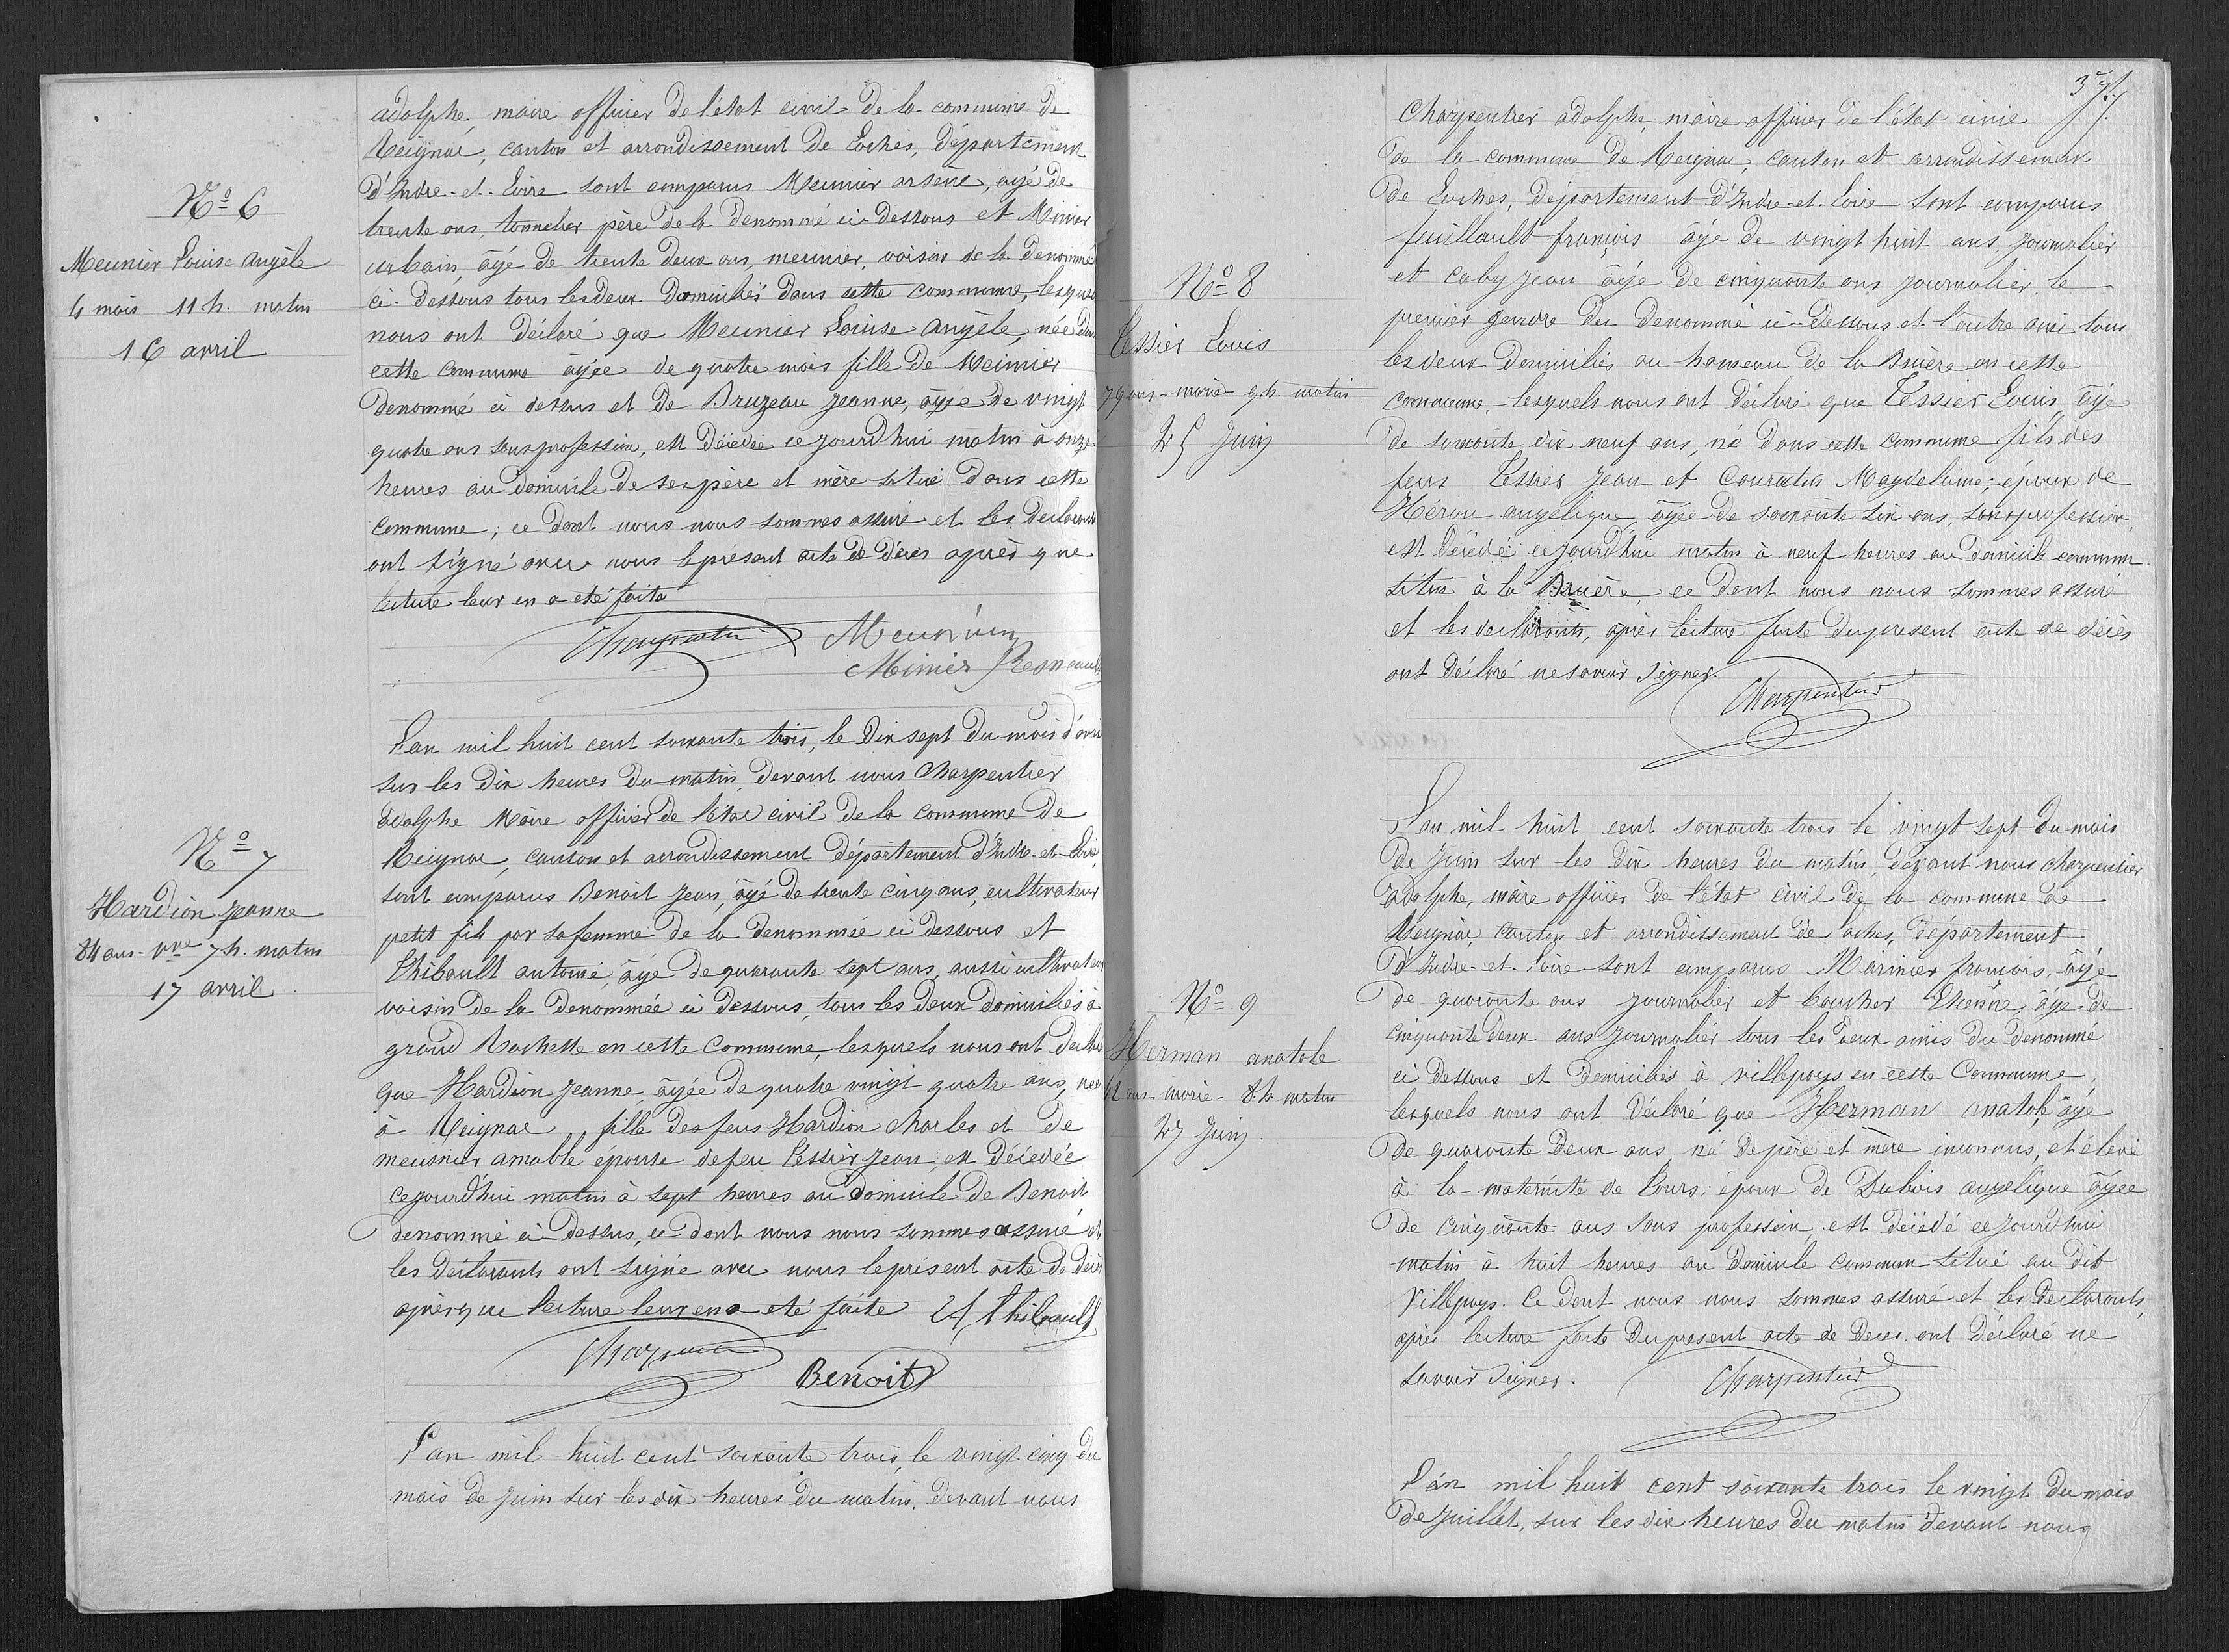 adolphe, maire officier de l'état civil de la commune de
Reignac, canton et arrondissement de Loches, département
d'Indre-et-Loire sont comparus Meunier arsène, agé de
trente ans, tonnelier père de la denommé ci-dessous et Minier
urbain, agé de trente deux ans, meunier, voisin de la denommé
N° 6
Meunier Louise angèle
4 mois 11 h. matin
16 avril
ci-dessous tous les deux domiciliés dans cette commune, lesquels
nous ont déclaré que Meunier Louise angèle, née dans
cette commune agée de quatre mois fille de Meunier
denommé ci dessus et de Bruzeau Jeanne, agée de vingt
quatre ans sans profession, est décédée ce jourd'hui matin à onze
heures au domicile de ses père et mère situé dans cette
commune; ce dont nous nous sommes assuré et les declarants
ont signé avec nous le présent acte de décès après que
lecture leur en a eté faite
Charpentier Meunier
Minier
L'an mil huit cent soixante trois, le dix sept du mois d'avril
sur les dix heures du matin, devant nous Charpentier
adolphe Maire officier de l'état civil de la commune de
Reignac, canton et arrondissement département d'Indre-et-Loire
sont comparus Benoit Jean, agé de trente cinq ans, cultivateur
N° 7
Hardion Jeanne
84 ans - vve 7 h. matin
17 avril
petit fils par sa femme de la denommée ci dessous et
Thibault antoine, agé de quarante sept ans, aussi cultivateur
voisin de la denommée ci dessous, tous les deux domiciliés à
grand Rochette en cette commune, lesquels nous ont declaré
que Hardion Jeanne, agée de quatre vingt quatre ans, née
à Reignac, fille des feus Hardion Charles et de
meusnier amable epouse de feu Tessier Jean, est décédée
ce jourd'hui matin à sept heures au domicile de Benoit
denommé ci-dessus, ce dont nous nous sommes assuré et
les declarants ont signé avec nous le présent acte de décès
après que lecture leur en a eté faite Thibault
Charpentier
Benoit
L'an mil huit cent soixante trois, le vingt cinq du
mois de juin sur les dix heures du matin, devant nous
37
Charpentier adolphe, maire officier de l'état civil
de la commune de Reignac, canton et arrondissement
de Loches, département d'Indre-et-Loire sont comparus
feuillault françois agé de vingt huit ans, journalier
et caby jean agé de cinquante ans journalier le
N° 8
Tessier Louis
79 ans - marié - 9 h. matin
25 Juin
premier gendre du denommé ci-dessous et l'autre ami tous
les deux domiciliés au hameau de la Bruère en cette
commune, lesquels nous ont déclaré que Tessier Louis, agé
de soixante dix neuf ans, né dans cette commune fils des
feus Tessier Jean et Couratin Magdelaine; époux de
Hérou angelique, agée de soixante six ans, sans profession,
est décédé ce jourd'hui matin à neuf heures au domicile commun
situé à la Bruère, ce dont nous nous sommes assuré
et les declarants, après lecture faite du present acte de décès
ont déclaré ne savoir signer.
Charpentier
L'an mil huit cent soixante trois le vingt sept du mois
de Juin sur les dix heures du matin, devant nous charpentier
adolphe, maire officier de l'état civil de la commune de
Reignac, canton et arrondissement de Loches, département
d'Indre-et-Loire sont comparus Marinier françois, agé
de quarante ans journalier et boucher Etienne, agé de
N° 9
Herman anatole
42 ans - marié - 8 h matin
27 Juin.
cinquante deux ans journalier tous les deux amis du denommé
ci dessous et domiciliés à villepays en cette Commune,
lesquels nous ont déclaré que Herman anatole, agé
de quarante deux ans, né de père et mère inconnus, et élevé
à la maternité de Tours; époux de Dubois angelique agée
de cinquante ans sans profession, est décédé ce jourd'hui
matin à huit heures au domicile commun situé au dit
Villepays. Ce dont nous nous sommes assuré et les declarants,
après lecture faite du present acte de deces, ont déclaré ne
savoir signer. Charpentier
L'an mil huit cent soixante trois le vingt du mois
de Juillet, sur les dix heures du matin devant nous